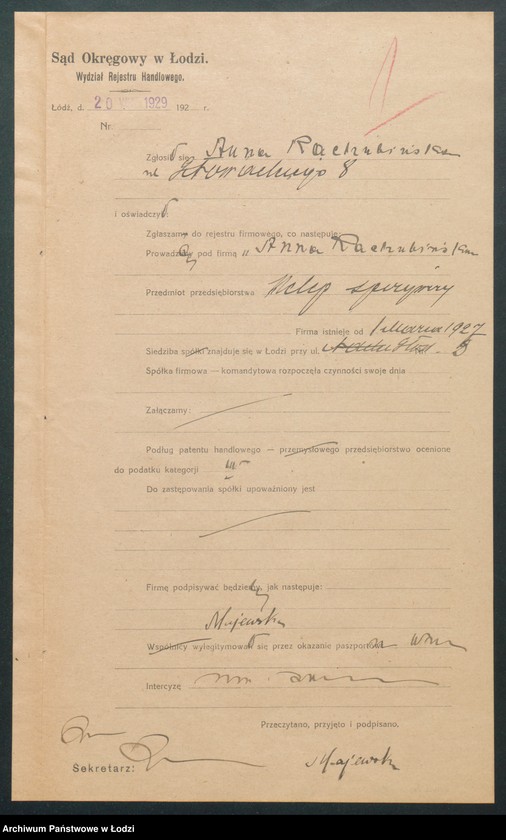 Sąd Okręgowy w Łodzi.
Wydział Rejestru Handlowego.
Łódź, d. 20 1929 192 r.
Nr.
Zgłosił się Anna Raczubińska
8
i oświadczył:
Zgłaszamy do rejestru firmowego, co następuje:
Prowadzimy pod firmą „Anna Raczubińska
Przedmiot przedsiębiorstwa Sklep spożywczy
Firma istnieje od 1 Marca 1927
Siedziba spółki znajduje się w Łodzi przy ul.
Spółka firmowa — komandytowa rozpoczęła czynności swoje dnia
Załączamy:
Podług patentu handlowego — przemysłowego przedsiębiorstwo ocenione
do podatku kategorji III
Do zastępowania spółki upoważniony jest
Firmę podpisywać będziemy, jak następuje:
Majewska
Wspólnicy wylegitymował się przez okazanie paszportu
Intercyzę nie
Przeczytano, przyjęto i podpisano.
Sekretarz:
Majewska
Archiwum Państwowe w Łodzi